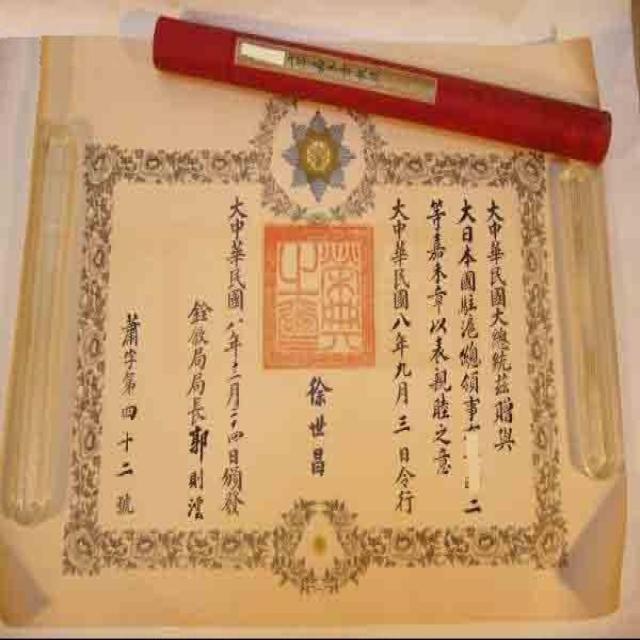 大中華民國大總統茲贈與
大日本國駐滬總領事
二
等嘉禾章以表親睦之意
大中華民國八年九月三日令行
榮典之璽
徐世昌
大中華民國八年十二月二十四日頒發
銓敘局局長郭則澐
蕭字第四十二號